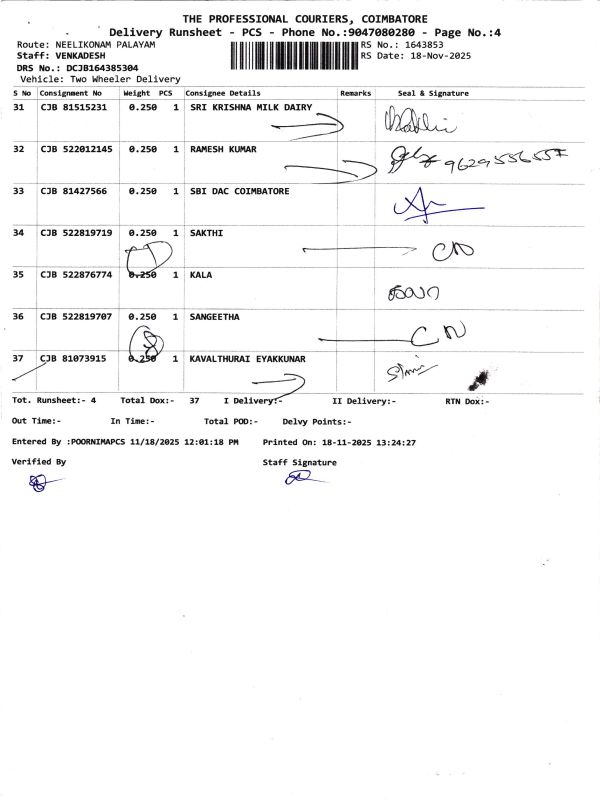 THE PROFESSIONAL COURIERS, COIMBATORE
Delivery Runsheet - PCS - Phone No.:9047080280 - Page No.:4
Route: NEELIKONAM PALAYAM RS No.: 1643853
Staff: VENKADESH RS Date: 18-Nov-2025
DRS No.: DCJB164385304
Vehicle: Two Wheeler Delivery
S No Consignment No Weight PCS Consignee Details Remarks Seal & Signature
31 CJB 81515231 0.250 1 SRI KRISHNA MILK DAIRY
32 CJB 522012145 0.250 1 RAMESH KUMAR
33 CJB 81427566 0.250 1 SBI DAC COIMBATORE
34 CJB 522819719 0.250 1 SAKTHI CN
35 CJB 522876774 0.250 1 KALA
36 CJB 522819707 0.250 1 SANGEETHA CN
37 CJB 81073915 0.250 1 KAVALTHURAI EYAKKUNAR
Tot. Runsheet:- 4 Total Dox:- 37 I Delivery:- II Delivery:- RTN Dox:-
Out Time:- In Time:- Total POD:- Delvy Points:-
Entered By :POORNIMAPCS 11/18/2025 12:01:18 PM Printed On: 18-11-2025 13:24:27
Verified By Staff Signature